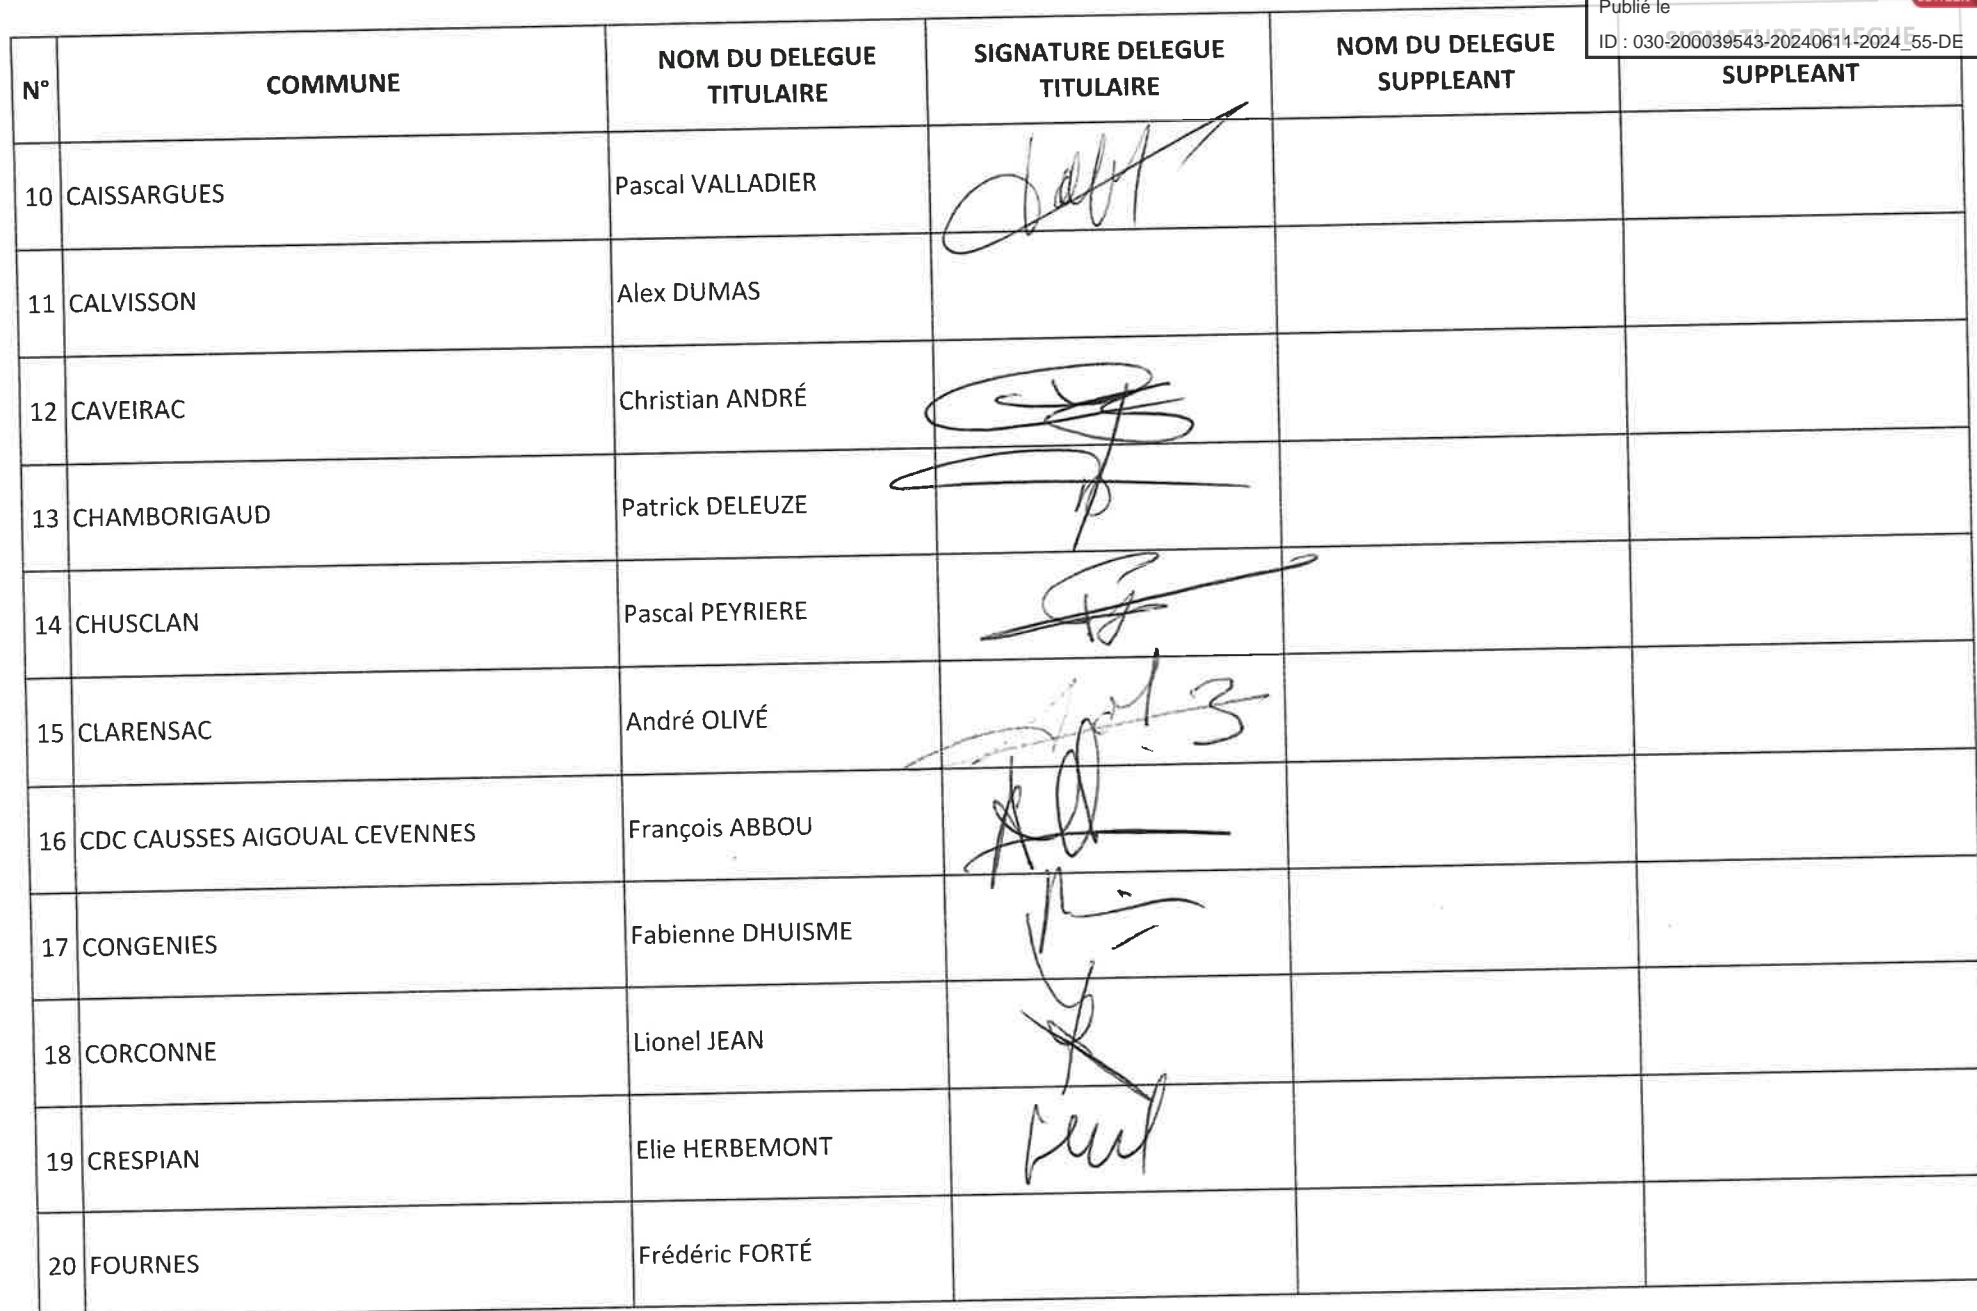 Publié le
ID : 030-200039543-20240611-2024_55-DE
N°
COMMUNE
NOM DU DELEGUE
TITULAIRE
SIGNATURE DELEGUE
TITULAIRE
NOM DU DELEGUE
SUPPLEANT
SIGNATURE DELEGUE
SUPPLEANT
10 CAISSARGUES Pascal VALLADIER
11 CALVISSON Alex DUMAS
12 CAVEIRAC Christian ANDRÉ
13 CHAMBORIGAUD Patrick DELEUZE
14 CHUSCLAN Pascal PEYRIERE
15 CLARENSAC André OLIVÉ
16 CDC CAUSSES AIGOUAL CEVENNES François ABBOU
17 CONGENIES Fabienne DHUISME
18 CORCONNE Lionel JEAN
19 CRESPIAN Elie HERBEMONT
20 FOURNES Frédéric FORTÉ